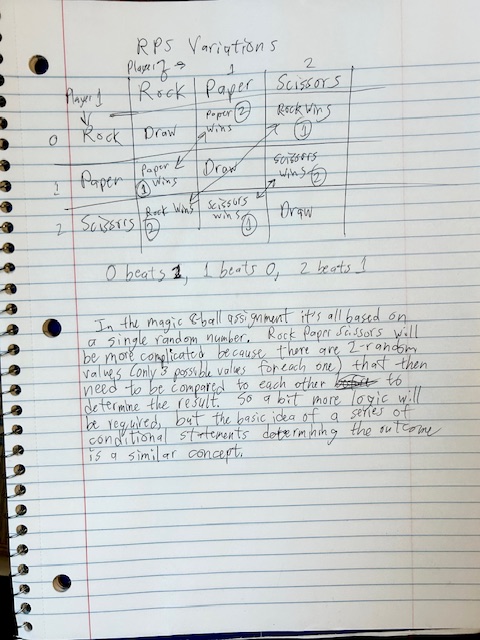 RPS Variations
Player 2 → 1 2
Rock Paper Scissors
Player 1
0 Rock Draw Paper wins 2 Rock Wins 1
1 Paper Paper Wins 1 Draw Scissors wins 2
2 Scissors Rock Wins 2 Scissors wins 1 Draw
0 beats 2, 1 beats 0, 2 beats 1
In the magic 8-ball assignment it's all based on
a single random number. Rock Paper Scissors will
be more complicated because there are 2-random
values (only 3 possible values for each one) that then
need to be compared to each other to
determine the result. So a bit more logic will
be required, but the basic idea of a series of
conditional statements determining the outcome
is a similar concept.